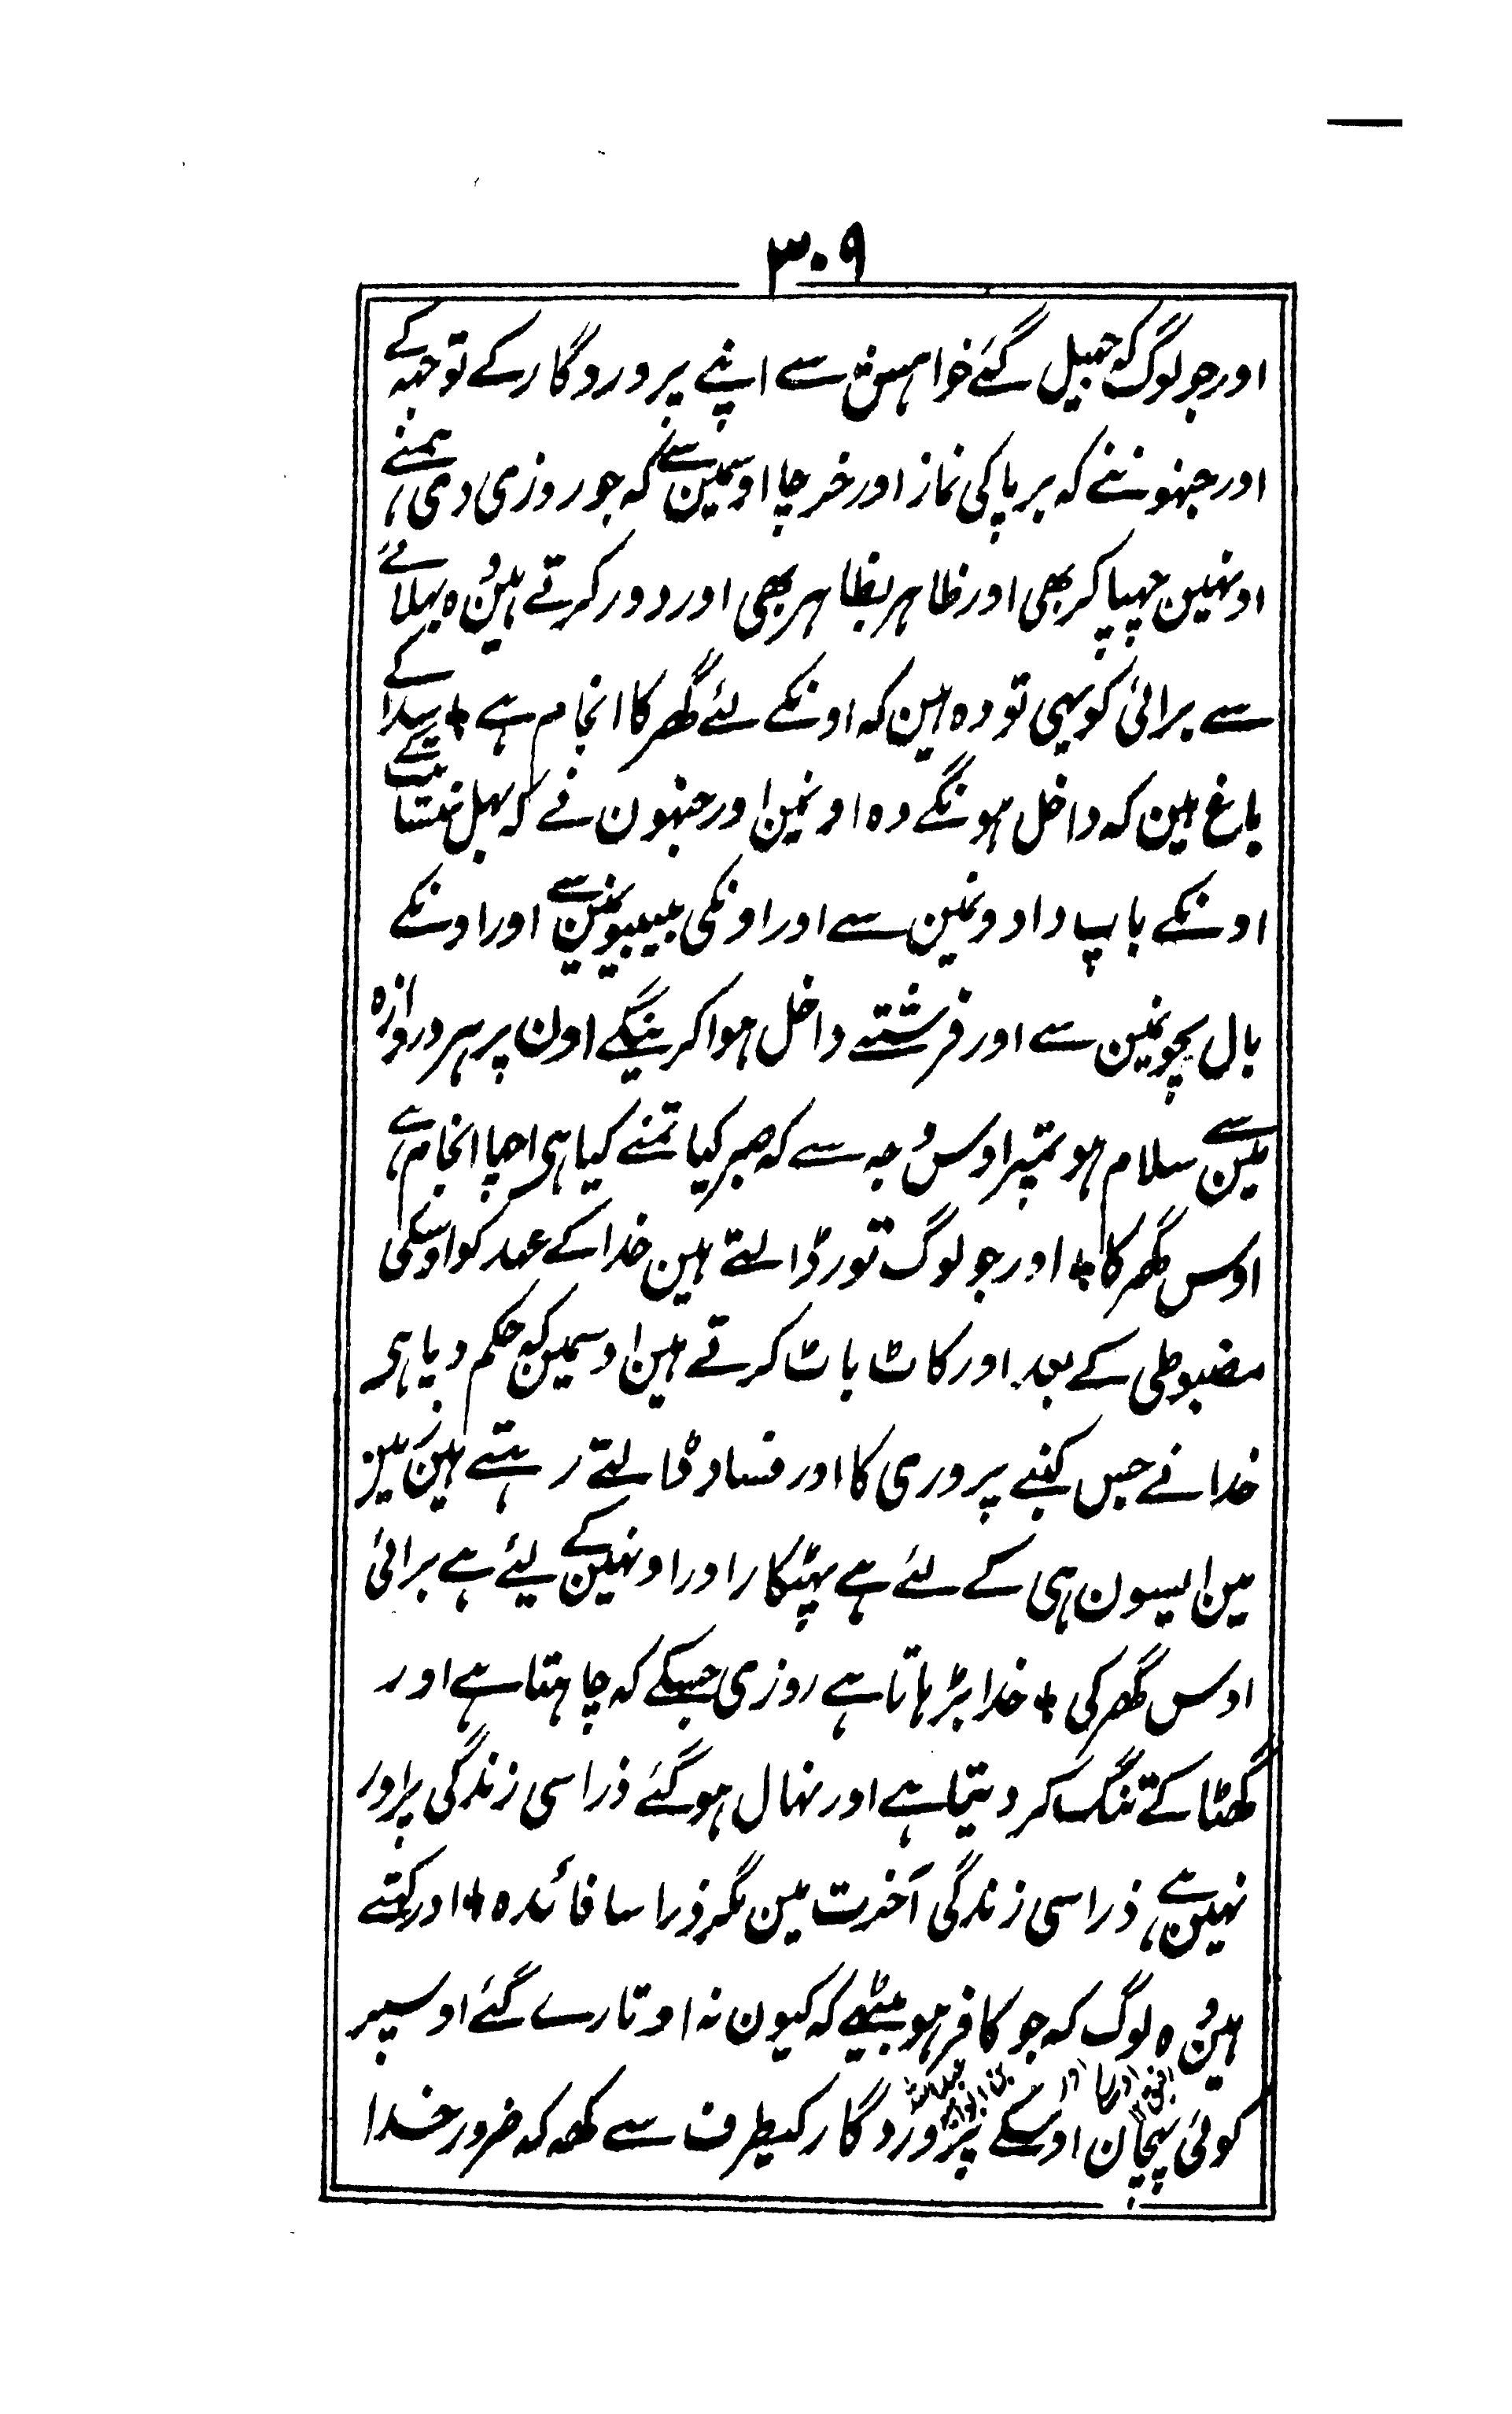 ۳۰۹
اور جو لوگ کہ جہیل گئے خواہش سے اپنے پروردگار کے توجہہ کے
اور جنہوننے کہ برپا کی نماز اور خرچا اوسمین سے کہ جو روزی دی ہمنے
اونہین چہپا کر بھی اور ظاہر بظاہر بھی اور دور کرتے ہین وہ بہلائے
سے برائی کو یہی تو وہ ہین کہ اونکے لئے گھر کا انجام ہے + سدا کے
باغ ہین کہ داخل ہونگے وہ اونمین اور جنہون نے کہ بہل منسات کے
اونکے باپ دادونمین سے اور اونکی بیبیونمین سے اور اونکے
بال بچونمین سے اور فرشتے داخل ہوا کرینگے اون پر ہر دروازہ
مین سے سلام ہو تمپر اوس وجہ سے کہ صبر کیا تمنے کیا ہی اچھا انجام ہے
اوس گھر کا + اور جو لوگ توڑ ڈالتے ہین خدا کے عہد کو اوسکی
مضبوطی کے بعد اور کاٹ باٹ کرتے ہین اوسمین کہ حکم دیا ہی
خدا نے جس کنبے پروری کا اور فساد ڈالتے رہتے ہین زمین
مین ایسون ہی کے لئے ہے پہٹکار اور اونہین کے لیئے ہے برائی
اوس گھر کی + خدا بڑہاتا ہے روزی جسکے کہ چاہتا ہے اور
گھٹا کے تنگ کر دیتا ہے اور نہال ہو گئے ذرا سی زندگی پر اور
نہین ہے ذرا سی زندگی آخرت مین مگر ذرا سا فائدہ + اور کہتے
ہین وہ لوگ کہ جو کافر ہو بیٹھے کہ کیون نہ اوتارے گئے اوسپر
کوئی پہچان اوسکے پروردگار کیطرف سے کھہ کہ ضرور خدا